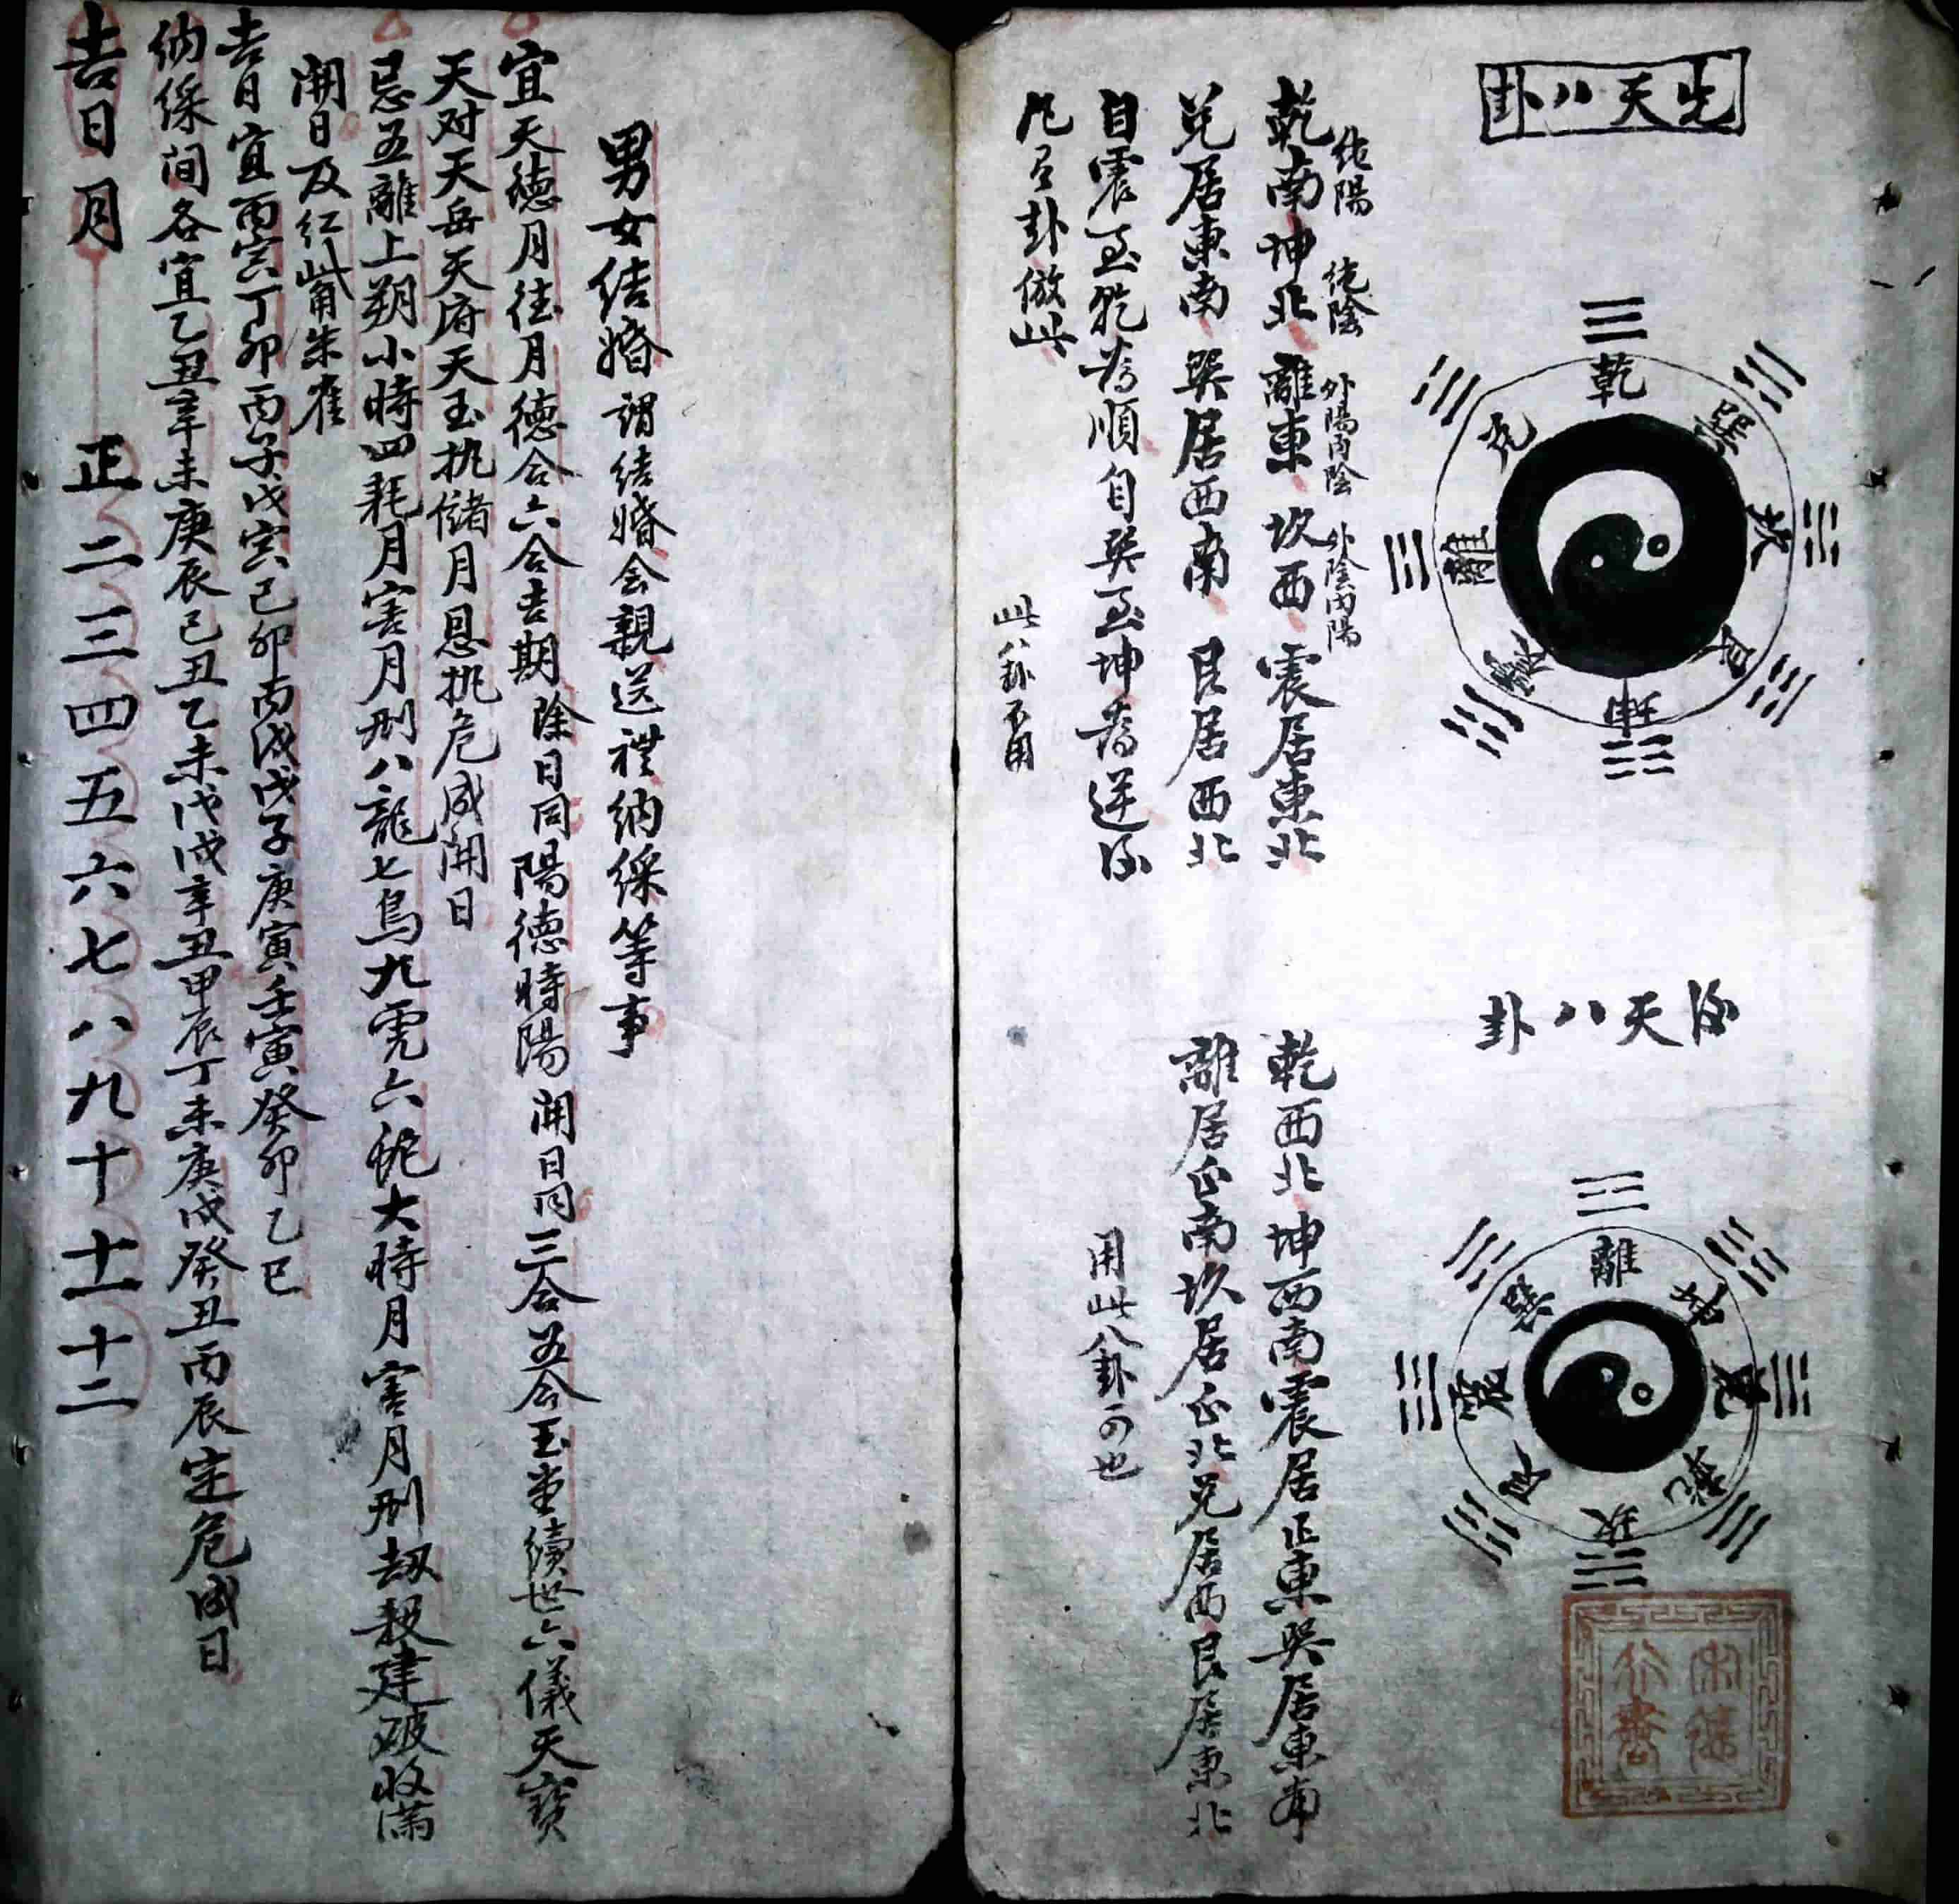 先天八卦
乾
巽
坎
艮
坤
震
離
兌
純陽 純陰 外陽内陰 外陰内陽
乾南坤北離東坎西震居東北
兌居東南巽居西南艮居西北
自震至乾為順自巽至坤為逆後
凡卦倣此
此八卦不用
后天八卦
離
坤
兌
乾
坎
艮
震
巽
乾西北坤西南震居正東巽居東南
離居正南坎居正北兌居西艮居東北
用此八卦可也
男女結婚謂結婚会親送禮納綵等事
宜天德月德月德合六合吉期除日同陽德時陽開日同三合五合玉堂續世六儀天寶
天对天岳天府天玉执儲月恩执危成開日
忌五離上朔小時四耗月害月刑八龍七鳥九虎六蛇大時月害月刑劫殺建破收满
開日及紅觜朱雀
吉日宜丙寅丁卯丙子戊寅己卯丙戌戊子庚寅壬寅癸卯乙巳
納綵间各宜乙丑辛未庚辰己丑乙未戊戌辛丑甲辰丁未庚戌癸丑丙辰定危成日
吉日月 正二三四五六七八九十十一十二